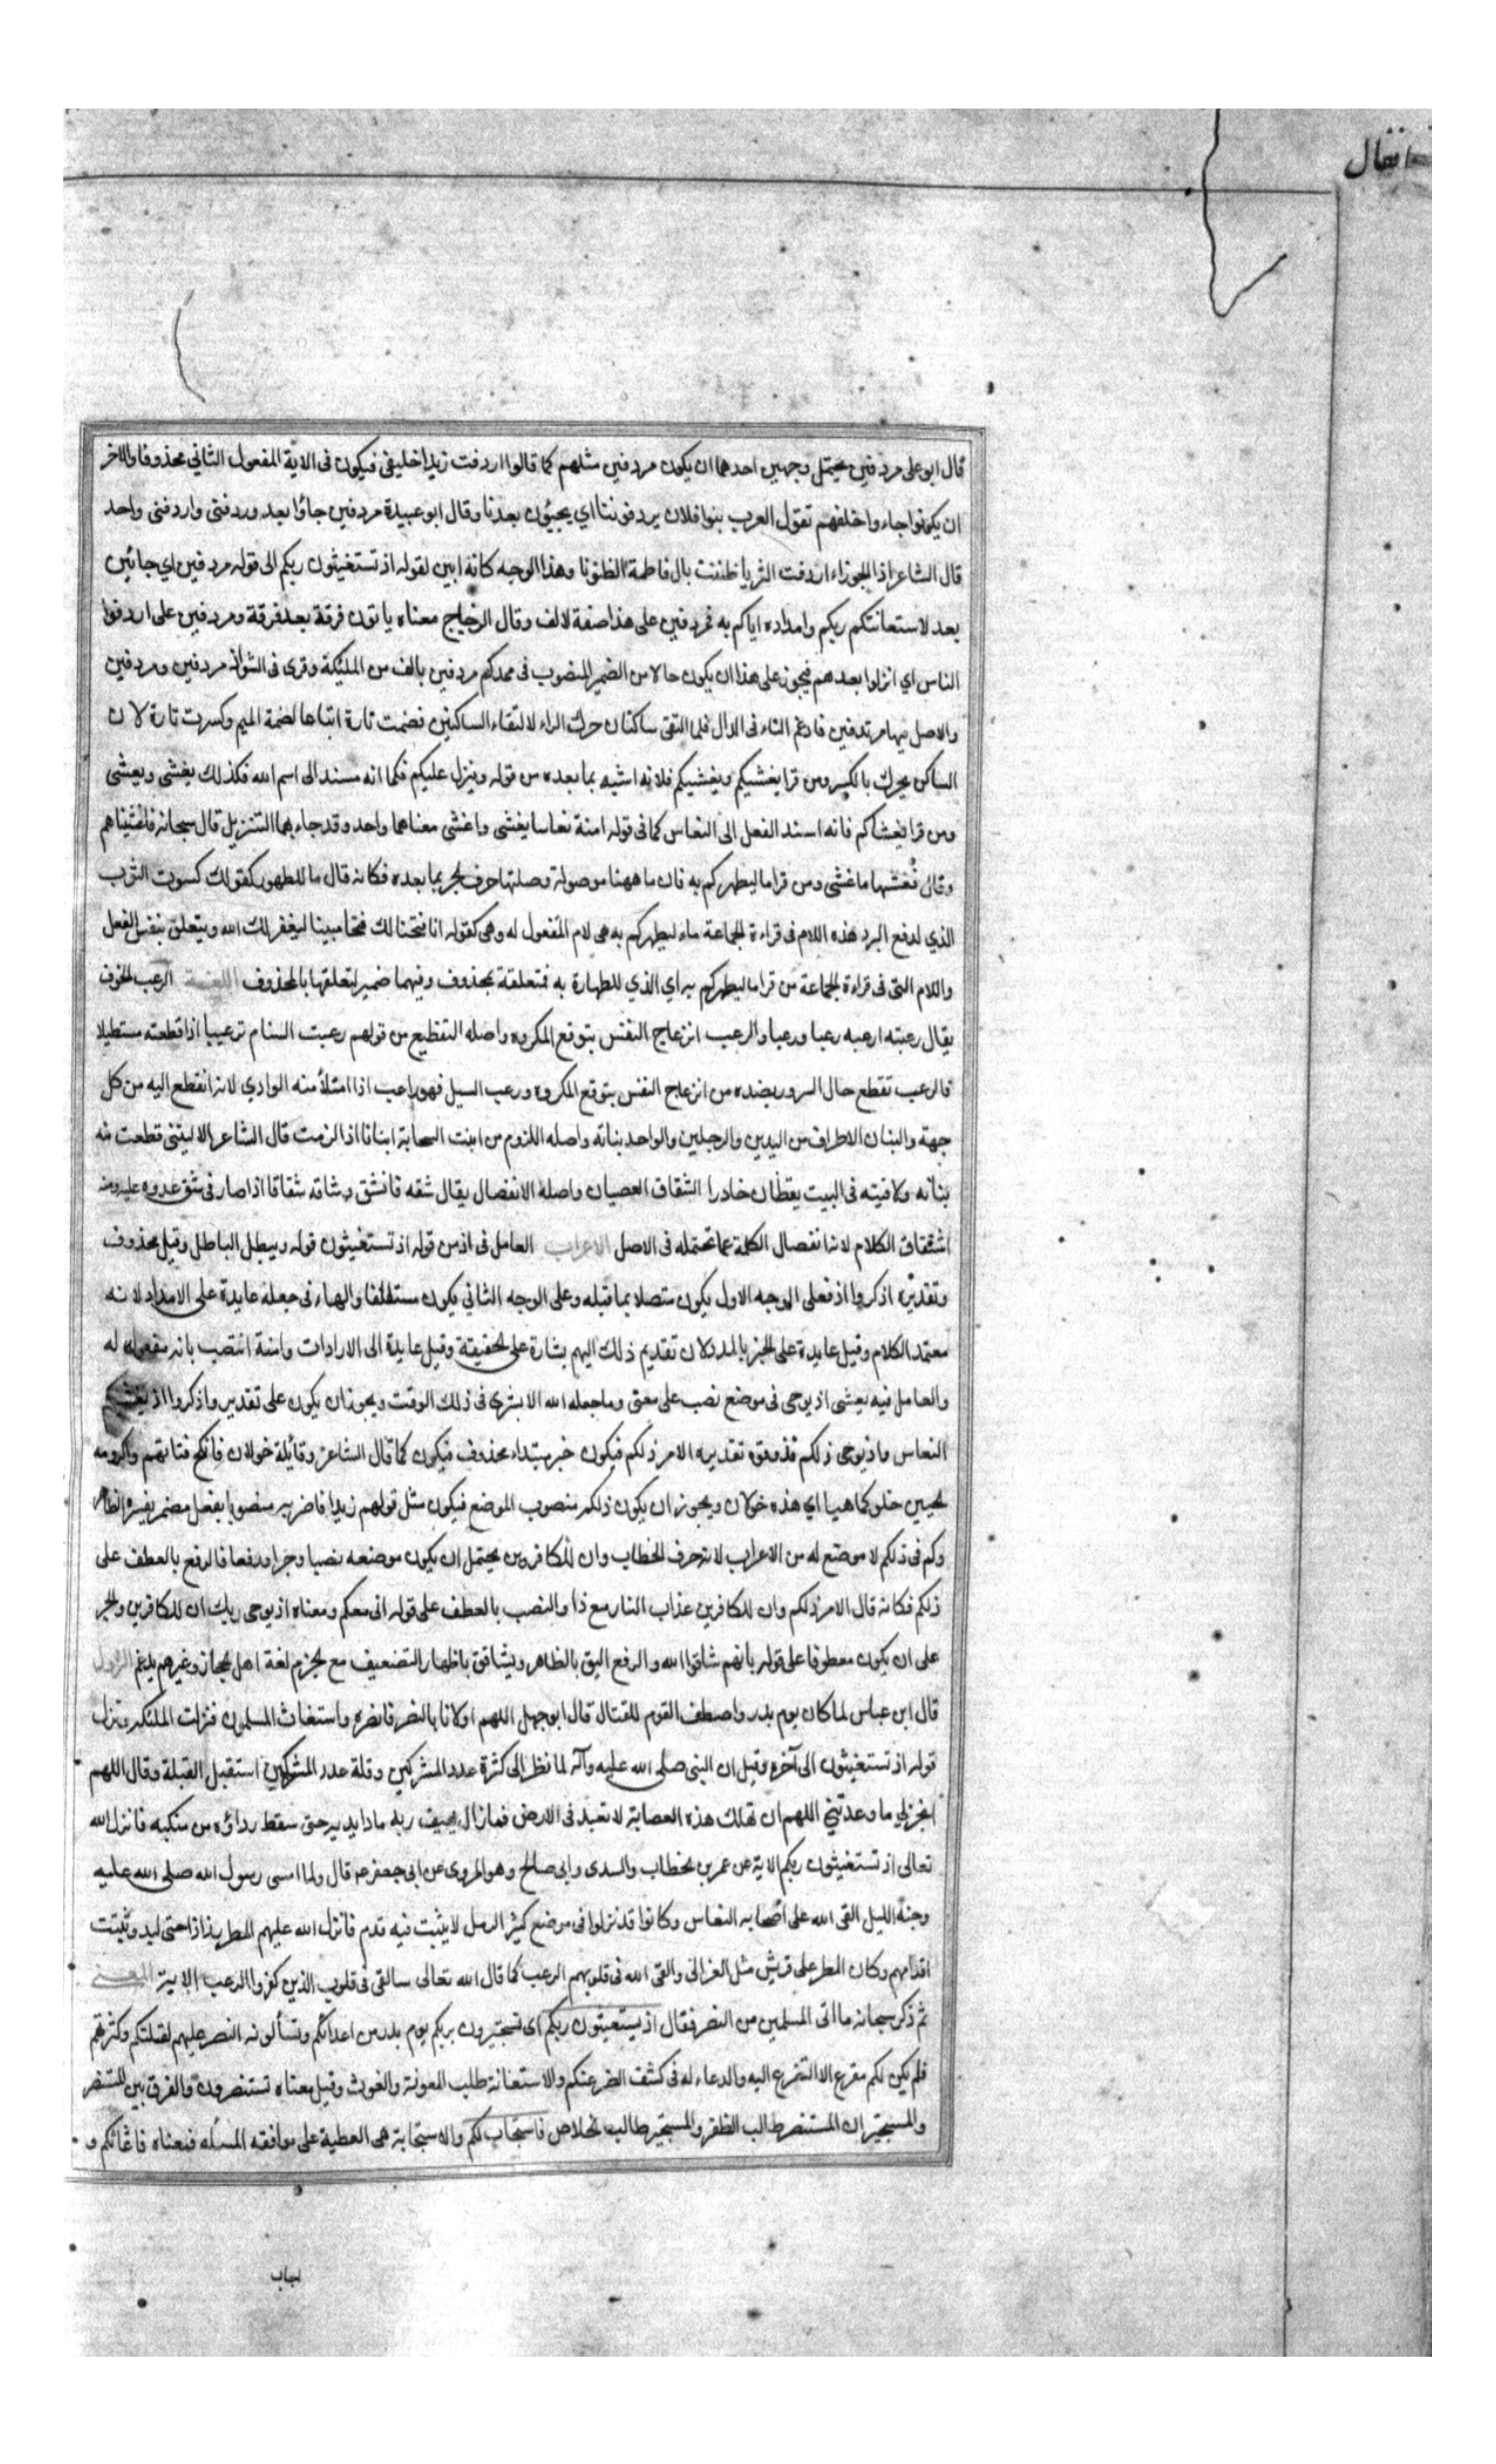 انفال
قال ابو على مردفين يحتمل وجهين احدهما ان يكون مردفين مثلهم كما قالوا اردفت زيدا خليفى فيكون فى الاية المفعول الثاني محذوفا والاخر
ان يكونوا جاء واخلفهم تقول العرب بنوا فلان يردفوننا اي يجيؤن بعدنا وقال ابو عبيدة مردفين جاؤا بعد وردفنى واردفنى واحد
قال الشاعر اذا الجوزاء اردفت الثريا ظننت بال فاطمة الظنونا وهذا الوجه كانه ابين لقوله اذ تستغيثون ربكم الى قوله مردفين اي جائين
بعد لاستعانتكم ربكم وامداده اياكم به فمردفين على هذا صفة لالف وقال الزجاج معناه ياتون فرقة بعد فرقة ومردفين على اردفوا
الناس اي انزلوا بعدهم فيجوز على هذا ان يكون حالا من الضمير المنصوب فى ممدكم مردفين بالف من الملئكة وقرى فى الشواذ مردفين ومردفين
والاصل فيهما مرتدفين فادغم التاء فى الدال فلما التقى ساكنان حرك الراء لالتقاء الساكنين فضمت تارة اتباعا لضمة الميم وكسرت تارة لان
الساكن يحرك بالكسر ومن قرا يغشيكم ويغشيكم فلانه اشبه بما بعده من قوله وينزل عليكم فكما انه مسند الى اسم الله فكذلك يغشى ويغشى
ومن قرا يغشاكم فانه اسند الفعل الى النعاس كما فى قوله امنة نعاسا يغشى واغشى معناهما واحد وقد جاء بهما التنزيل قال سبحانه فاغشيناهم
وقال فغشيها ما غشى ومن قرا ما ليطهركم به فان ما ههنا موصولة وصلتها حرف الجر بما بعده فكانه قال ما للطهور كقولك كسوت الثوب
الذي لدفع البرد هذه اللام فى قراءة الجماعة ماء ليطهركم به هى لام المفعول له وهى كقوله انا فتحنا لك فتحا مبينا ليغفر لك الله ويتعلق بنفس الفعل
واللام التى فى قراءة الجماعة من قرا ما ليطهركم به اي الذي للطهارة به فتعلقة بمحذوف وفيهما ضمير لتعلقها بالمحذوف اللغة الرعب الخوف
يقال رعبته ارعبه رعبا ورعبا والرعب انزعاج النفس بتوقع المكروه واصله التقطيع من قولهم رعبت السنام ترعيبا اذا قطعته مستطيلا
فالرعب تقطع حال السرور بضده من انزعاج النفس بتوقع المكروه ورعب السيل فهو راعب اذا امتلأ منه الوادي لانه انقطع اليه من كل
جهة والبنان الاطراف من اليدين والرجلين والواحد بنانة واصله اللزوم من ابنت السحابة ابنانا اذا لزمت قال الشاعر الا ليتنى قطعت منه
بنانه ولاقيته فى البيت يقظان خادرا الشقاق العصيان واصله الانفصال يقال شقه فانشق وشاقه شقاقا اذا صار فى شق عدوه عليه ومنه
اشتقاق الكلام لانه انفصال الكلمة عما تحتمله فى الاصل الاعراب العامل فى اذ من قوله اذ تستغيثون قوله ويبطل الباطل وقيل محذوف
وتقديره اذكروا اذ فعلى الوجه الاول يكون متصلا بما قبله وعلى الوجه الثاني يكون مستانفا والهاء فى جعله عايدة على الامداد لانه
معتمد الكلام وقيل عايدة على الخبر بالمدد لان تقديم ذلك اليهم بشارة على الحقيقة وقيل عايدة الى الارادات وامنة انتصب بانه مفعول له
والعامل فيه يغشى اذ يوحى فى موضع نصب على معنى وما جعله الله الا بشرى فى ذلك الوقت ويجوز ان يكون على تقدير واذكروا اذ يغشيكم
النعاس واذ يوحى ذلكم فذوقوه تقديره الامر ذلكم فيكون خبر مبتداء محذوف فيكون كما قال الشاعر وقائلة خولان فانكح فتاتهم واكرومة
الحيين خلو كما هيا اي هذه خولان ويجوز ان يكون ذلكم منصوب الموضع فيكون مثل قولهم زيدا فاضربه منصوبا بفعل مضمر يفسره الظاهر
وكم فى ذلكم لا موضع له من الاعراب لانه حرف الخطاب وان للكافرين يحتمل ان يكون موضعه نصبا وجرا ورفعا فالرفع بالعطف على
ذلكم فكانه قال الامر ذلكم وان للكافرين عذاب النار مع ذا والنصب بالعطف على قوله انى معكم ومعناه اذ يوحى ربك ان للكافرين والجر
على ان يكون معطوفا على قوله بانهم شاقوا الله والرفع اليق بالظاهر ويشاقق باظهار التضعيف مع الجزم لغة اهل الحجاز وغيرهم يدغم النزول
قال ابن عباس لما كان يوم بدر واصطف القوم للقتال قال ابو جهل اللهم اولانا بالنصر فانصره واستغاث المسلمون فنزلت الملئكة ونزل
قوله اذ تستغيثون الى آخره وقيل ان النبى صلى الله عليه وآله لما نظر الى كثرة عدد المشركين وقلة عدد المشركين استقبل القبلة وقال اللهم
انجز لي ما وعدتني اللهم ان تهلك هذه العصابة لا تعبد فى الارض فما زال يهتف ربه مادا يديه حتى سقط رداؤه من منكبه فانزل الله
تعالى اذ تستغيثون ربكم الاية عن عمر بن الخطاب والسدى وابى صالح وهو المروى عن ابى جعفر ع قال ولما امسى رسول الله صلى الله عليه
وجنه الليل القى الله على اصحابه النعاس وكانوا قد نزلوا فى موضع كثير الرمل لا يثبت فيه قدم فانزل الله عليهم المطر رذاذا حتى لبد وثبتت
اقدامهم وكان المطر على قريش مثل العزالى والقى الله فى قلوبهم الرعب كما قال الله تعالى سالقى فى قلوب الذين كفروا الرعب الاية المعنى
ثم ذكر سبحانه ما اتى المسلمين من النصر فقال اذ يستغيثون ربكم اى تستجيرون بربكم يوم بدر من اعدائكم وتسألونه النصر عليهم لقلتكم وكثرتهم
فلم يكن لكم مفزع الا التضرع اليه والدعاء له فى كشف الضر عنكم والاستغاثة طلب المعونة والغوث وقيل معناه تستنصرون والفرق بين المستنصر
والمستجير ان المستنصر طالب الظفر والمستجير طالب الخلاص فاستجاب لكم والاستجابة هى العطية على موافقه المسئله فمعناه فاغاثكم و
اجاب